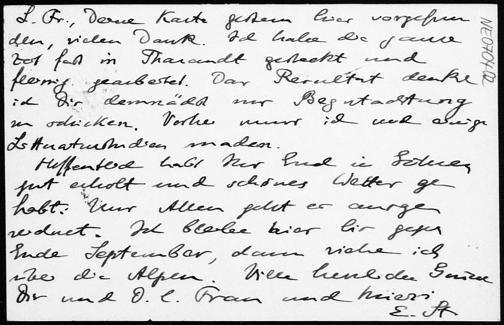 L. Fr., Deine Karte gestern hier vorgefun
den, vielen Dank. Ich habe die ganze
Zeit fest in Tharandt gesteckt und
fleissig gearbeitet. Das Resultat denke
ich Dir demnächst zur Begutachtung
zu schicken. Vorher muss ich noch einige
Litteraturstudien machen.
Hoffentlich habt Ihr Euch in
gut erholt und schönes Wetter ge
habt. Uns Allen geht es ausge
zeichnet. Ich bleibe hier bis gegen
Ende September, dann ziehe ich
über die Alpen. Viele herzliche Grüsse
Dir und D. l. Frau und
E. St